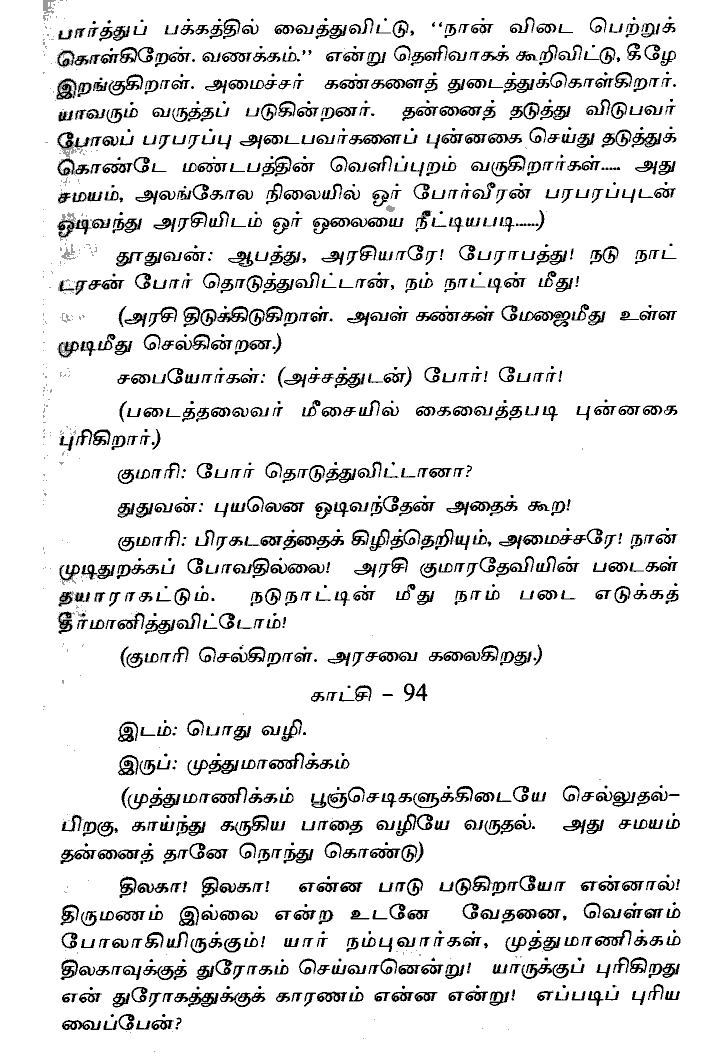 பார்த்துப் பக்கத்தில் வைத்துவிட்டு, “நான் விடை பெற்றுக்
கொள்கிறேன். வணக்கம்.” என்று தெளிவாகக் கூறிவிட்டு, கீழே
இறங்குகிறாள். அமைச்சர் கண்களைத் துடைத்துக்கொள்கிறார்.
யாவரும் வருத்தப் படுகின்றனர். தன்னைத் தடுத்து விடுபவர்
போலப் பரபரப்பு அடைபவர்களைப் புன்னகை செய்து தடுத்துக்
கொண்டே மண்டபத்தின் வெளிப்புறம் வருகிறார்கள்..... அது
சமயம், அலங்கோல நிலையில் ஓர் போர்வீரன் பரபரப்புடன்
ஓடிவந்து அரசியிடம் ஓர் ஓலையை நீட்டியபடி......)
தூதுவன்: ஆபத்து, அரசியாரே! பேராபத்து! நடு நாட்
டரசன் போர் தொடுத்துவிட்டான், நம் நாட்டின் மீது!
(அரசி திடுக்கிடுகிறாள். அவள் கண்கள் மேஜைமீது உள்ள
முடிமீது செல்கின்றன.)
சபையோர்கள்: (அச்சத்துடன்) போர்! போர்!
(படைத்தலைவர் மீசையில் கைவைத்தபடி புன்னகை
புரிகிறார்.)
குமாரி: போர் தொடுத்துவிட்டானா?
துதுவன்: புயலென ஓடிவந்தேன் அதைக் கூற!
குமாரி: பிரகடனத்தைக் கிழித்தெறியும், அமைச்சரே! நான்
முடிதுறக்கப் போவதில்லை! அரசி குமாரதேவியின் படைகள்
தயாராகட்டும். நடுநாட்டின் மீது நாம் படை எடுக்கத்
தீர்மானித்துவிட்டோம்!
(குமாரி செல்கிறாள். அரசவை கலைகிறது.)
காட்சி – 94
இடம்: பொது வழி.
இருப்: முத்துமாணிக்கம்
(முத்துமாணிக்கம் பூஞ்செடிகளுக்கிடையே செல்லுதல்–
பிறகு, காய்ந்து கருகிய பாதை வழியே வருதல். அது சமயம்
தன்னைத் தானே நொந்து கொண்டு)
திலகா! திலகா! என்ன பாடு படுகிறாயோ என்னால்!
திருமணம் இல்லை என்ற உடனே வேதனை, வெள்ளம்
போலாகியிருக்கும்! யார் நம்புவார்கள், முத்துமாணிக்கம்
திலகாவுக்குத் துரோகம் செய்வானென்று! யாருக்குப் புரிகிறது
என் துரோகத்துக்குக் காரணம் என்ன என்று! எப்படிப் புரிய
வைப்பேன்?